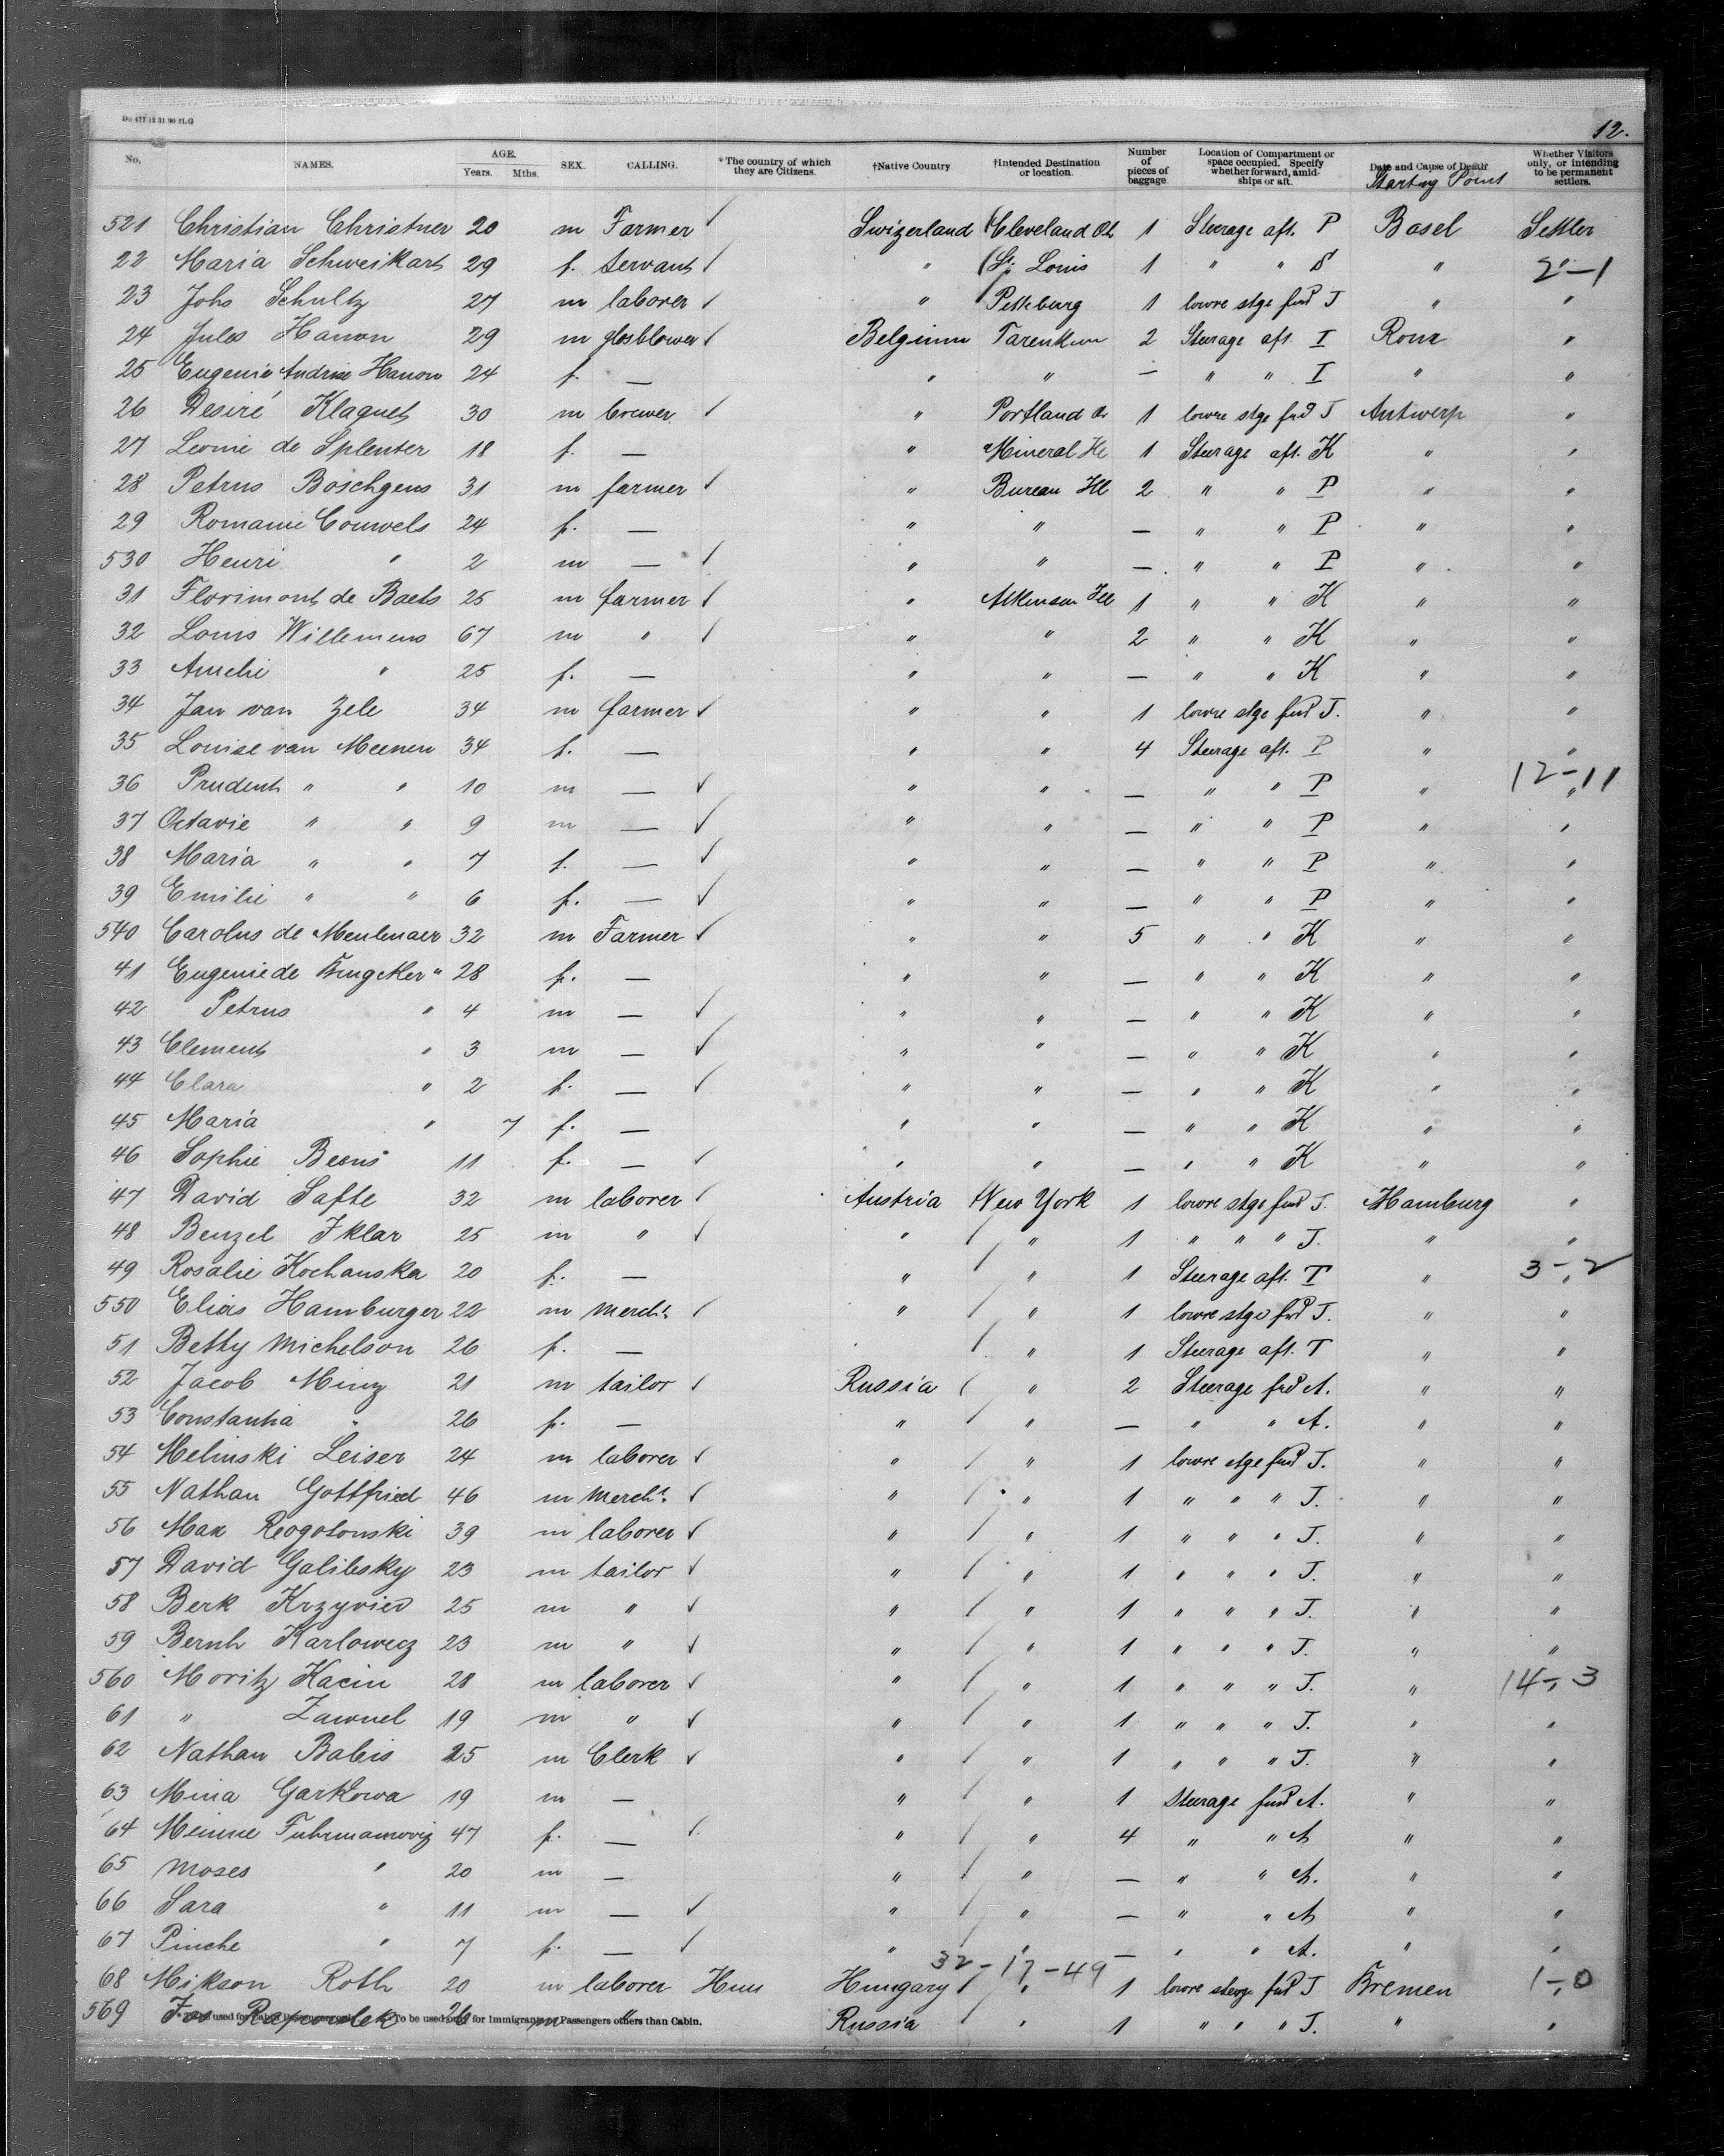 12.
No. NAMES. AGE. Years. Mths. SEX. CALLING. *The country of which they are Citizens. †Native Country †Intended Destination or location. Number of pieces of baggage Location of Compartment or space occupied. Specify whether forward, amidships or aft. Date and Cause of Death Starting Point Whether Visitors only, or intending to be permanent settlers.
521 Christian Christner 20 m Farmer ✓ Swizerland Cleveland Oh. 1 Steerage aft. P Basel Settler
22 Maria Schweikart 29 f. servant ✓ " St. Louis 1 " " S " 2-1
23 Johs Schultz 27 m laborer ✓ " Pettsburg 1 lowre stge fwd J " "
24 Jules Hanon 29 m glosblower ✓ Belgium Tarentum 2 Steerage aft. I "
25 Eugenie Andrine Hanon 24 f. — " " — " " I " "
26 Desiré Klaguet 30 m brewer ✓ " Portland 1 lowre stge fwd J Antwerp "
27 Leonie de Splenter 18 f. — " Mineral 1 Steerage aft. K " "
28 Petrus Boschgens 31 m farmer ✓ " Bureau Ill 2 " " P " "
29 Romanie Couwels 24 f. — " " — " " P " "
530 Henri " 2 m — ✓ " " — " " P " "
31 Florimont de Baets 25 m farmer ✓ " Atkinson Ill 1 " " K " "
32 Louis Willemens 67 m " ✓ " " 2 " " K " "
33 Amelie " 25 f. — " " — " " K " "
34 Jan van Zele 34 m farmer ✓ " " 1 lowre stge fwd J. " "
35 Louise van Meenen 34 f. — " " 4 Steerage aft. P " "
36 Prudent " " 10 m — ✓ " " — " " P " 12-11
37 Octavie " " 9 m — ✓ " " — " " P " "
38 Maria " " 7 f. — ✓ " " — " " P " "
39 Emilie " " 6 f. — ✓ " " — " " P " "
540 Carolus de Meulenaer 32 m Farmer ✓ " " 5 " " K " "
41 Eugenie de " 28 f. — " " — " " K " "
42 Petrus " 4 m — ✓ " " — " " K " "
43 Clement " 3 m — ✓ " " — " " K " "
44 Clara " 2 f. — ✓ " " — " " K " "
45 Maria " 7 f. — " " — " " K " "
46 Sophie Beens 11 f. — ✓ " " — " " K " "
47 David Safte 32 m laborer ✓ Austria New York 1 lowre stge fwd J. Hamburg "
48 Benzel Iklar 25 m " ✓ " " 1 " " " J. " "
49 Rosalie Kochanska 20 f. — " " 1 Steerage aft. T " 3-2
550 Elias Hamburger 22 m mercht. ✓ " " 1 lowre stge fwd J. " "
51 Betty Michelson 26 f. — " 1 Steerage aft. T " "
52 Jacob Minz 21 m tailor ✓ Russia " 2 Steerage fwd A. " "
53 Constantia " 26 f. — " " — " " A. " "
54 Melinski Leiser 24 m laborer ✓ " " 1 lowre stge fwd J. " "
55 Nathan Gottfried 46 m mercht. ✓ " " 1 " " " J. " "
56 Max Rogotonski 39 m laborer ✓ " " 1 " " " J. " "
57 David Galibsky 23 m tailor ✓ " " 1 " " " J. " "
58 Berk Krzyvied 25 m " ✓ " " 1 " " " J. " "
59 Bernh Karlowecz 23 m " ✓ " " 1 " " " J. " "
560 Moritz Kacin 28 m laborer ✓ " " 1 " " " J. " 14-3
61 " Zawuel 19 m " ✓ " " 1 " " " J. " "
62 Nathan Babis 25 m Clerk ✓ " " 1 " " " J. " "
63 Mina Garkowa 19 m — " " 1 Steerage fwd A. " "
64 Meinne Fuhrmanowiz 47 f. — " " 4 " " A " "
65 Moses " 20 m — " " — " " A. " "
66 Sara " 11 m — ✓ " " — " " A " "
67 Pinche " 7 f. — ✓ " " — " " A. " "
32-17-49
68 Mikson Roth 20 m laborer Hun Hungary " 1 lowre sterge fwd J Bremen 1-0
569 26 m " Russia " 1 " " " J. " "
To be used for Immigrant Passengers others than Cabin.